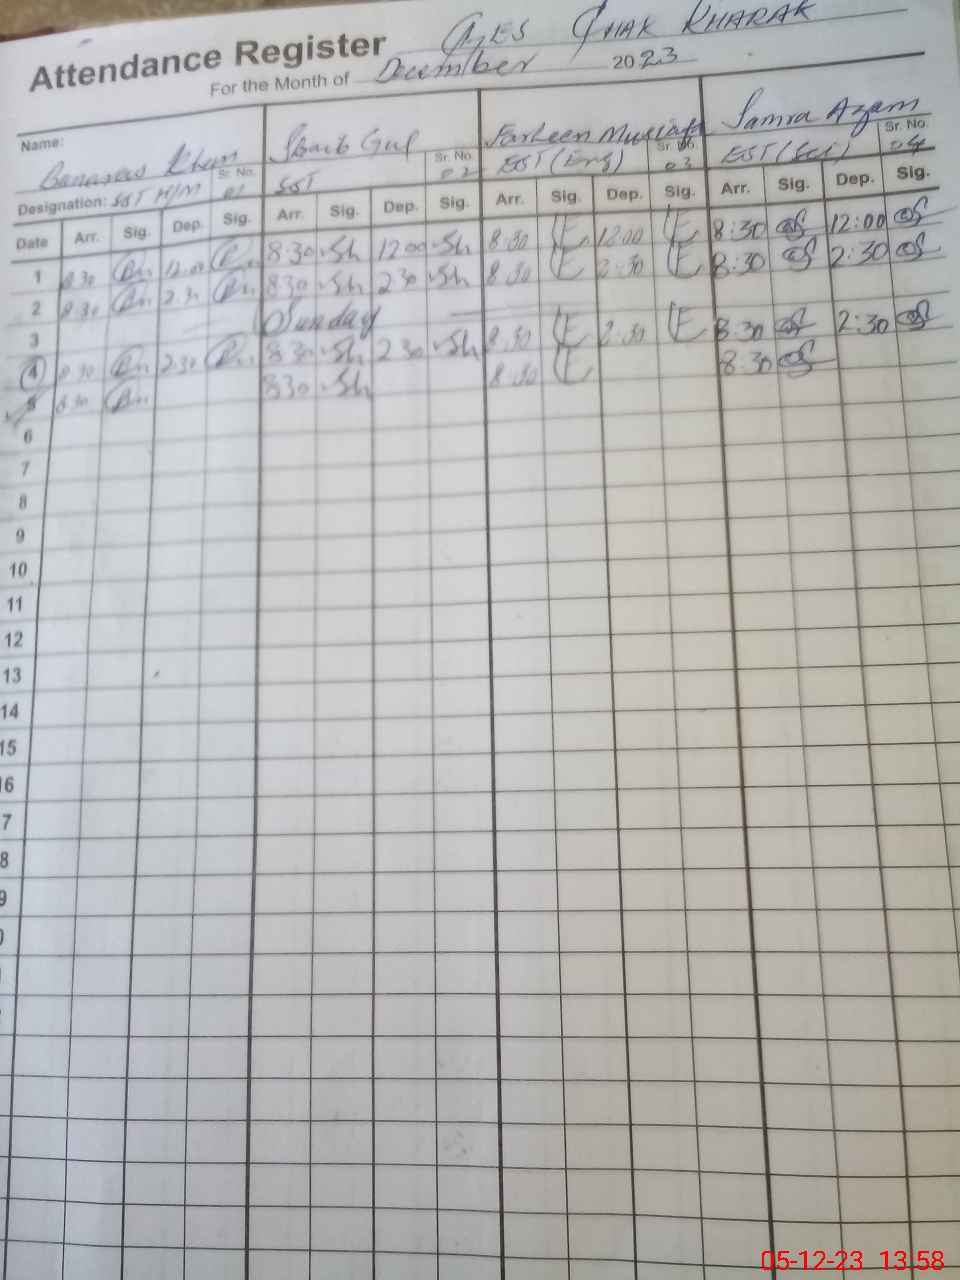 Attendance Register GES CHAK KHARAK
For the Month of December 2023
Name: Banaras Khan Sr. No. 01 Shaib Gul Sr. No. 02 Farheen Mustafa Sr. No. 03 Samra Azam Sr. No. 04
Designation: SST H/M SST EST (Eng) EST (Sci)
Date Arr. Sig. Dep. Sig. Arr. Sig. Dep. Sig. Arr. Sig. Dep. Sig. Arr. Sig. Dep. Sig.
1 8:30 12:00 8:30 Sh 12:00 Sh 8:30 12:00 8:30 12:00
2 8:30 2:30 8:30 Sh 2:30 Sh 8:30 2:30 8:30 2:30
3 Sunday
4 8:30 2:30 8:30 Sh 2:30 Sh 8:30 2:30 8:30 2:30
5 8:30 8:30 Sh 8:30 8:30
6
7
8
9
10
11
12
13
14
15
16
7
8
9
05-12-23 13:58